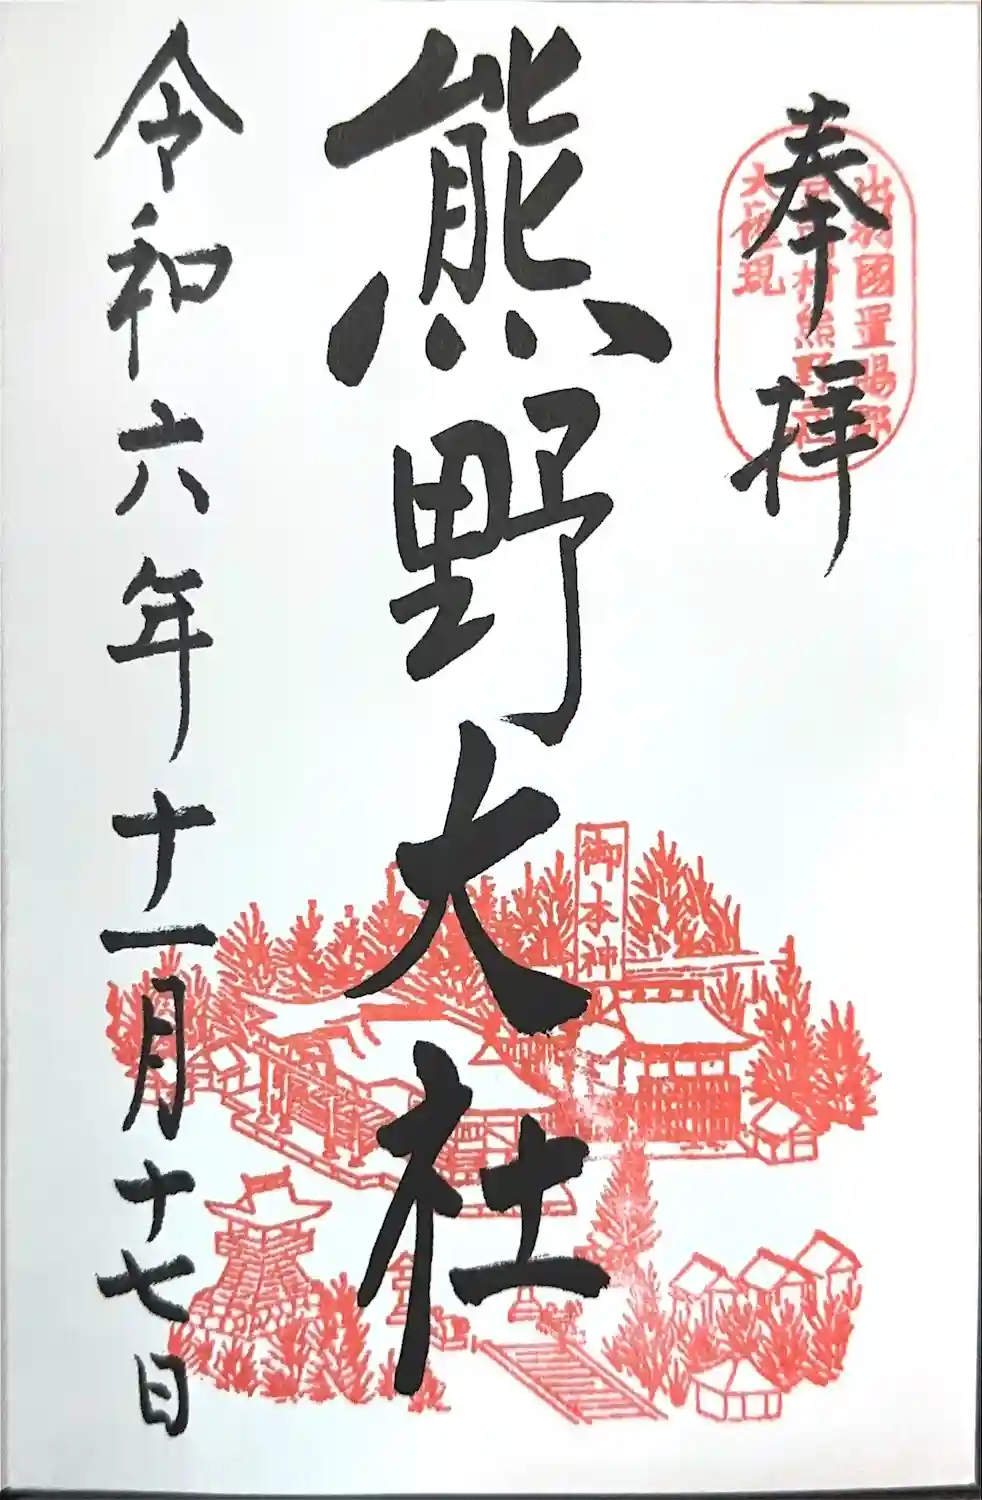 奉拝
出羽國置賜郡
宮内村熊野社
大權現
熊野大社
御本神
令和六年十一月十七日